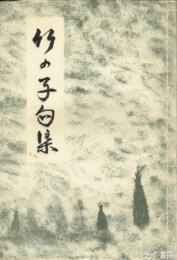 竹の子句集